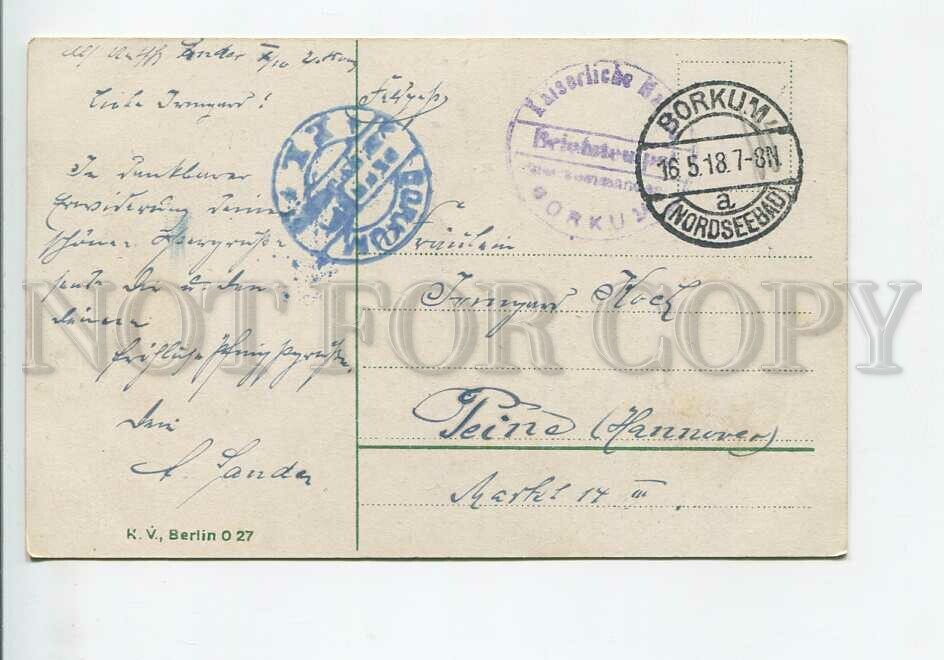 Sander
Liebe Irmgard!
In dankbarer
Erwiderung deiner
schönen Ostergrüße
sende Dir u. den
deinen
fröhliche Pfingstgrüße.
Dein
A. Sander
K. V., Berlin O 27
Feldpost
BORKUM
Kaiserliche Ma
Briefstempel
BORKUM
BORKUM
16.5.18.7-8N.
a
(NORDSEEBAD)
Fräulein
Irmgard Koch
Peine (Hannover)
Markt 14 III
NOT FOR COPY